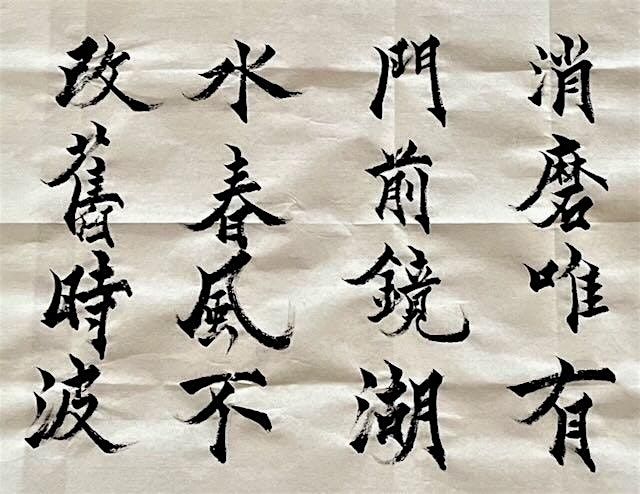 消磨唯有
門前鏡湖
水春風不
改舊時波